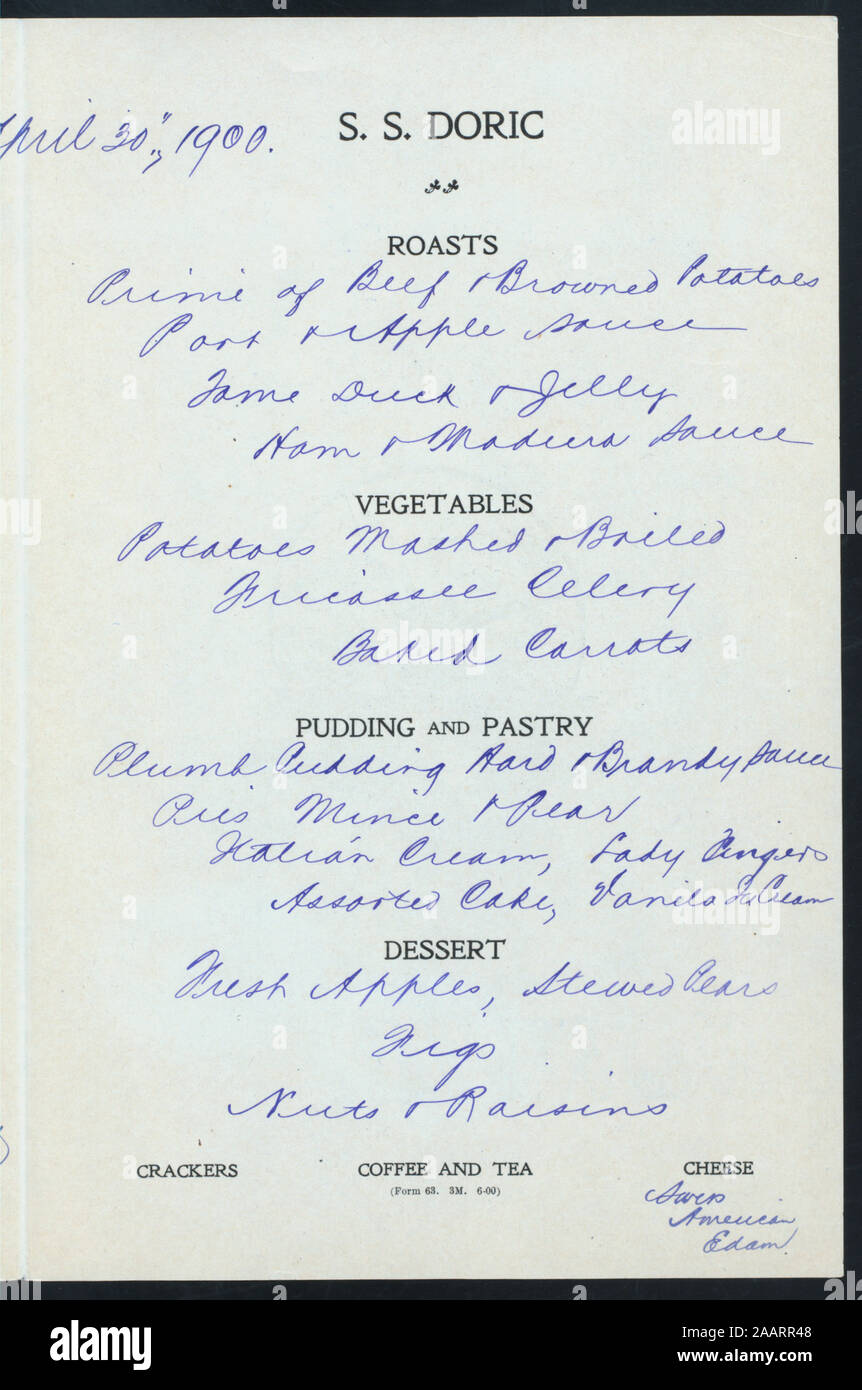 April 30th, 1900.
S. S. DORIC
ROASTS
Prime of Beef & Browned Potatoes
Pork & Apple Sauce
Tame Duck & Jelly
Ham & Madiera Sauce
VEGETABLES
Potatoes Mashed & Boiled
Fricassee Celery
Baked Carrots
PUDDING AND PASTRY
Plumb Pudding Hard & Brandy Sauce
Pies Mince & Pear
Italian Cream, Lady Fingers
Assorted Cake, Vanila Ice Cream
DESSERT
Fresh Apples, Stewed Pears
Figs
Nuts & Raisins
CRACKERS COFFEE AND TEA CHEESE
(Form 63. 3M. 6-00)
Swiss
American
Edam.
alamy
Image ID: 2AARR48
www.alamy.com